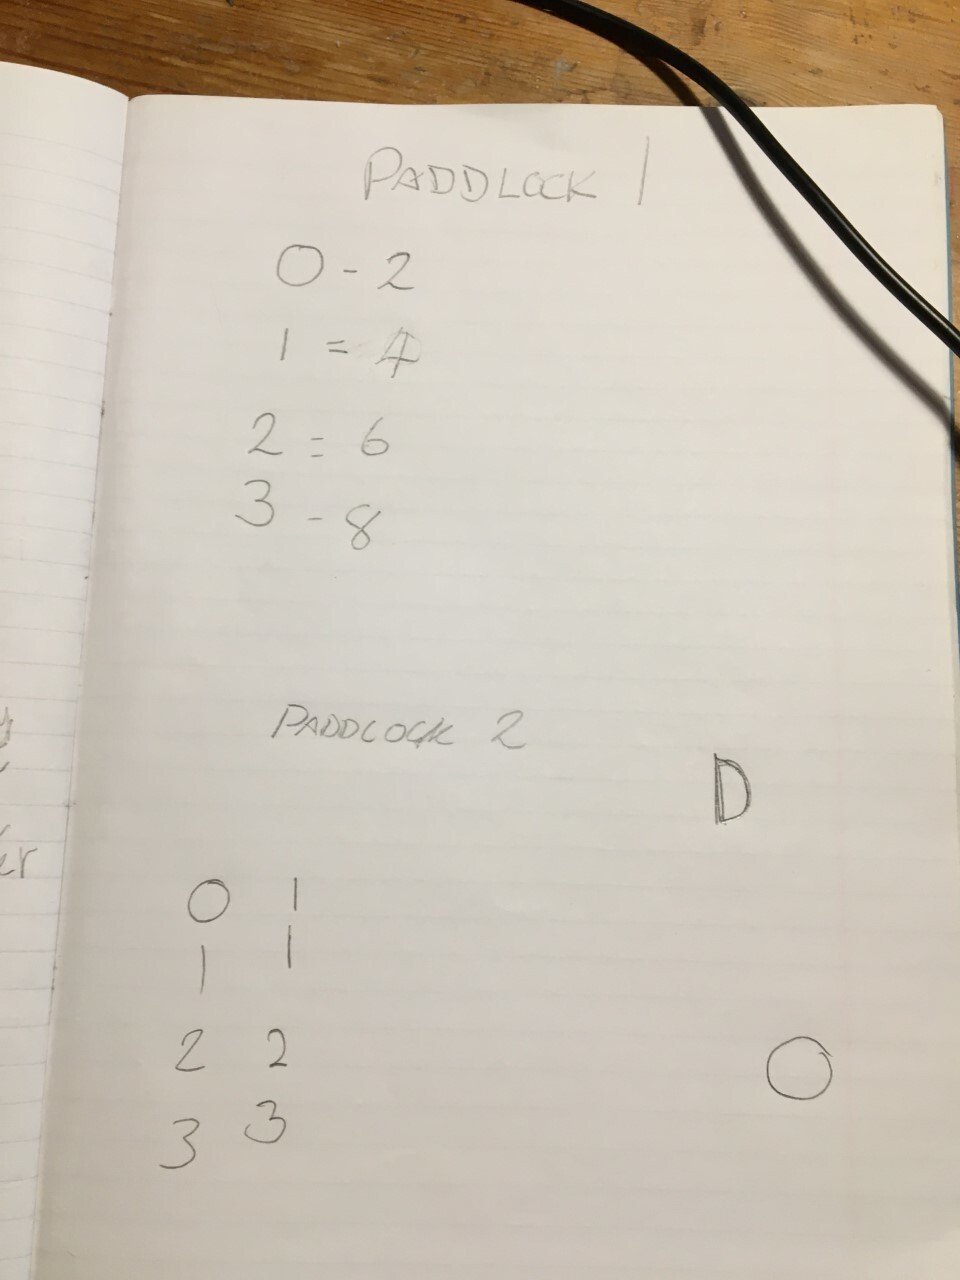 PADDLOCK 1
0 - 2
1 = 4
2 = 6
3 - 8
PADDLOCK 2
D
0 1
1 1
2 2
3 3
O
er